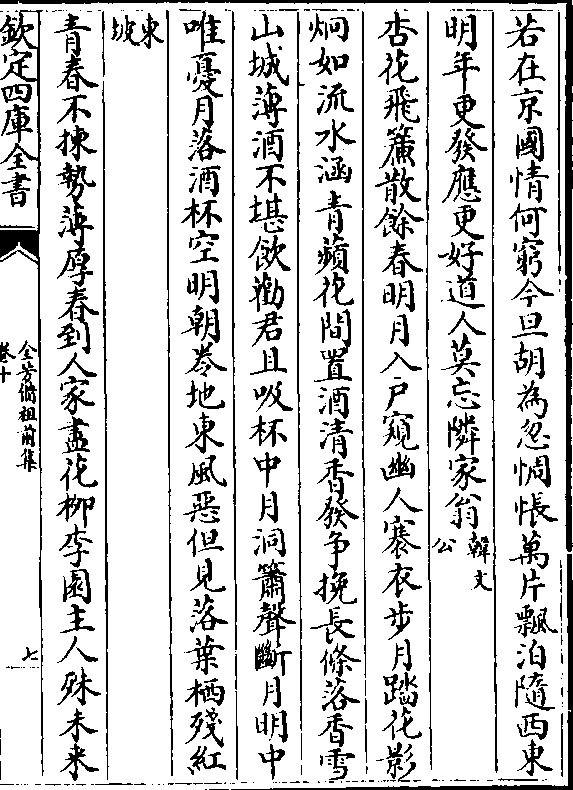 若在京國情何窮今旦胡為忽惆悵萬片飄泊隨西東
明年更發應更好道人莫忘隣家翁韓文公
杏花飛簾散餘春明月入戶窺幽人褰衣步月踏花影
炯如流水涵青蘋花間置酒清香發争挽長條落香雪
山城薄酒不堪飲勸君且吸杯中月洞簫聲斷月明中
唯憂月落酒杯空明朝卷地東風惡但見落葉栖殘紅
東坡
青春不揀勢薄厚春到人家盡花柳李園主人殊未来
欽定四庫全書
全芳備祖前集
卷十
七